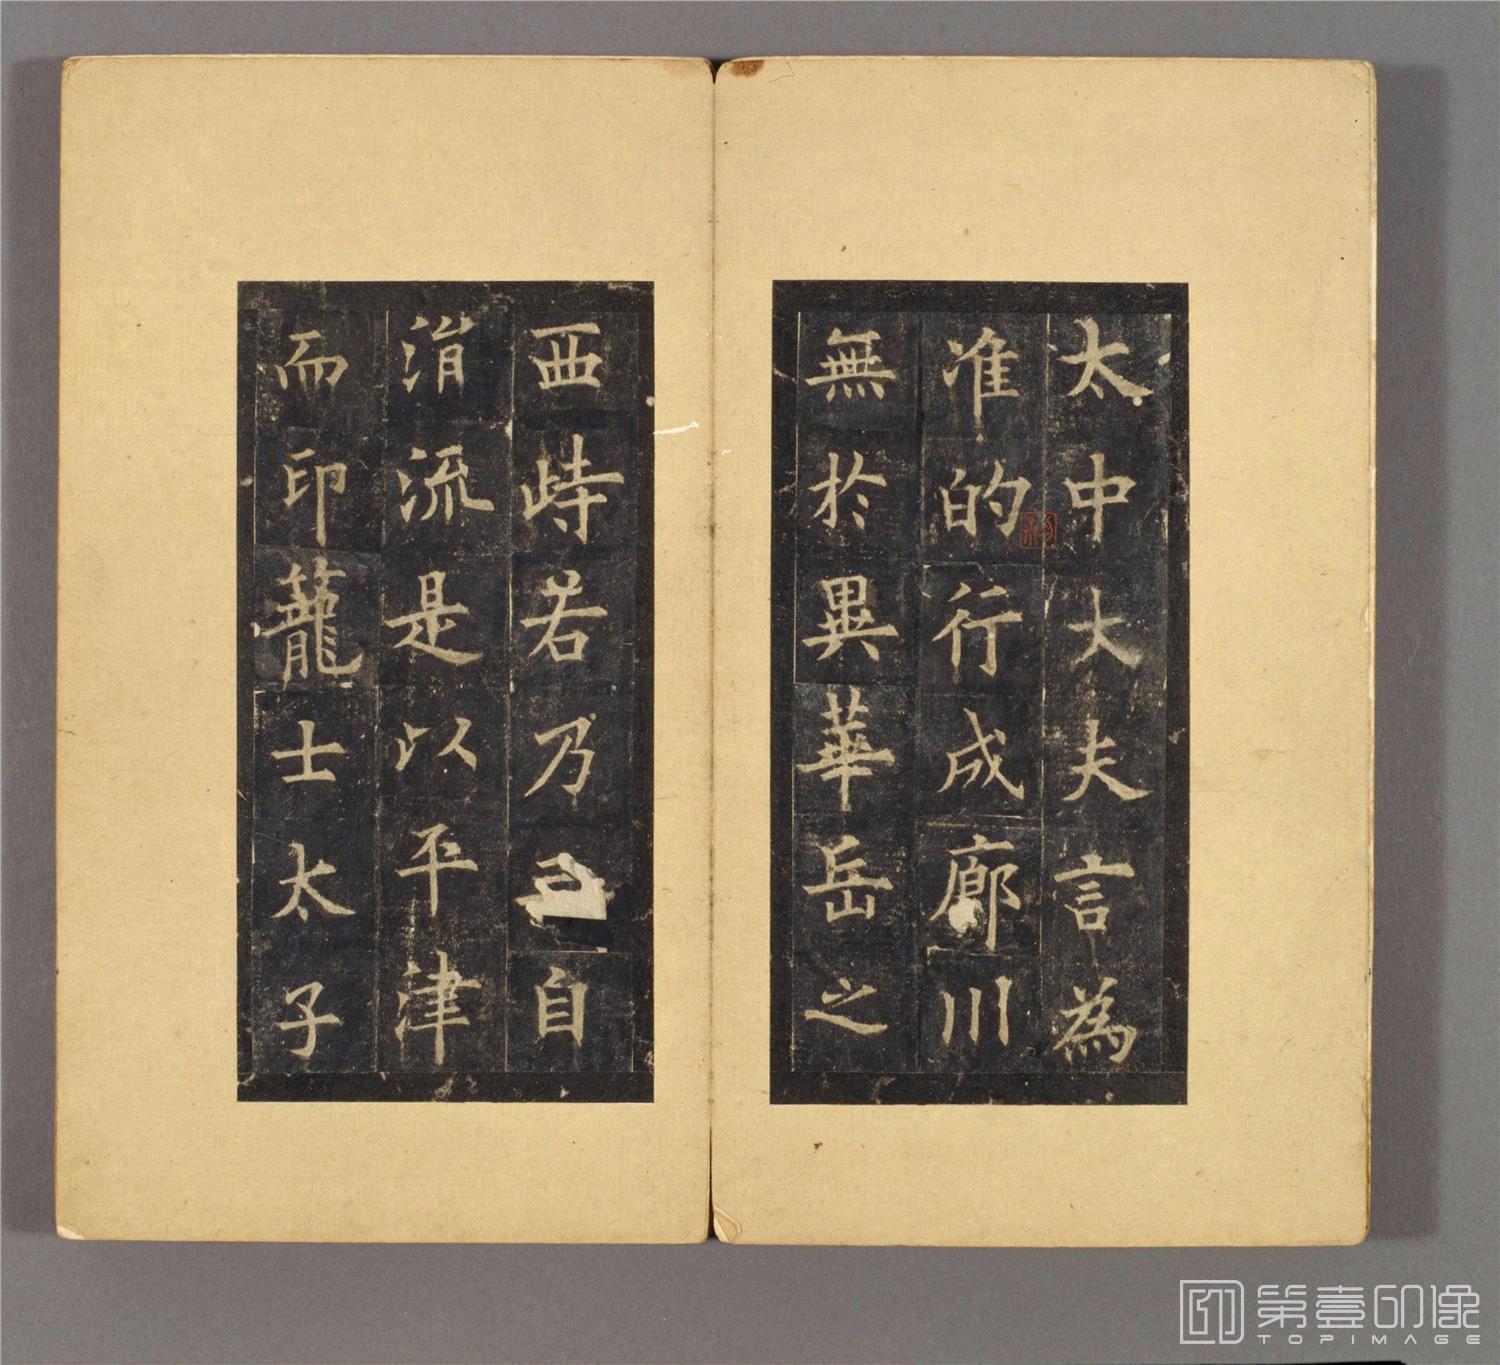 太中大夫言為
准的行成廊川
無於異華岳之
西峙若乃
自
涓流是以平津
而印蘢士太子
第壹印像
TOPIMAGE